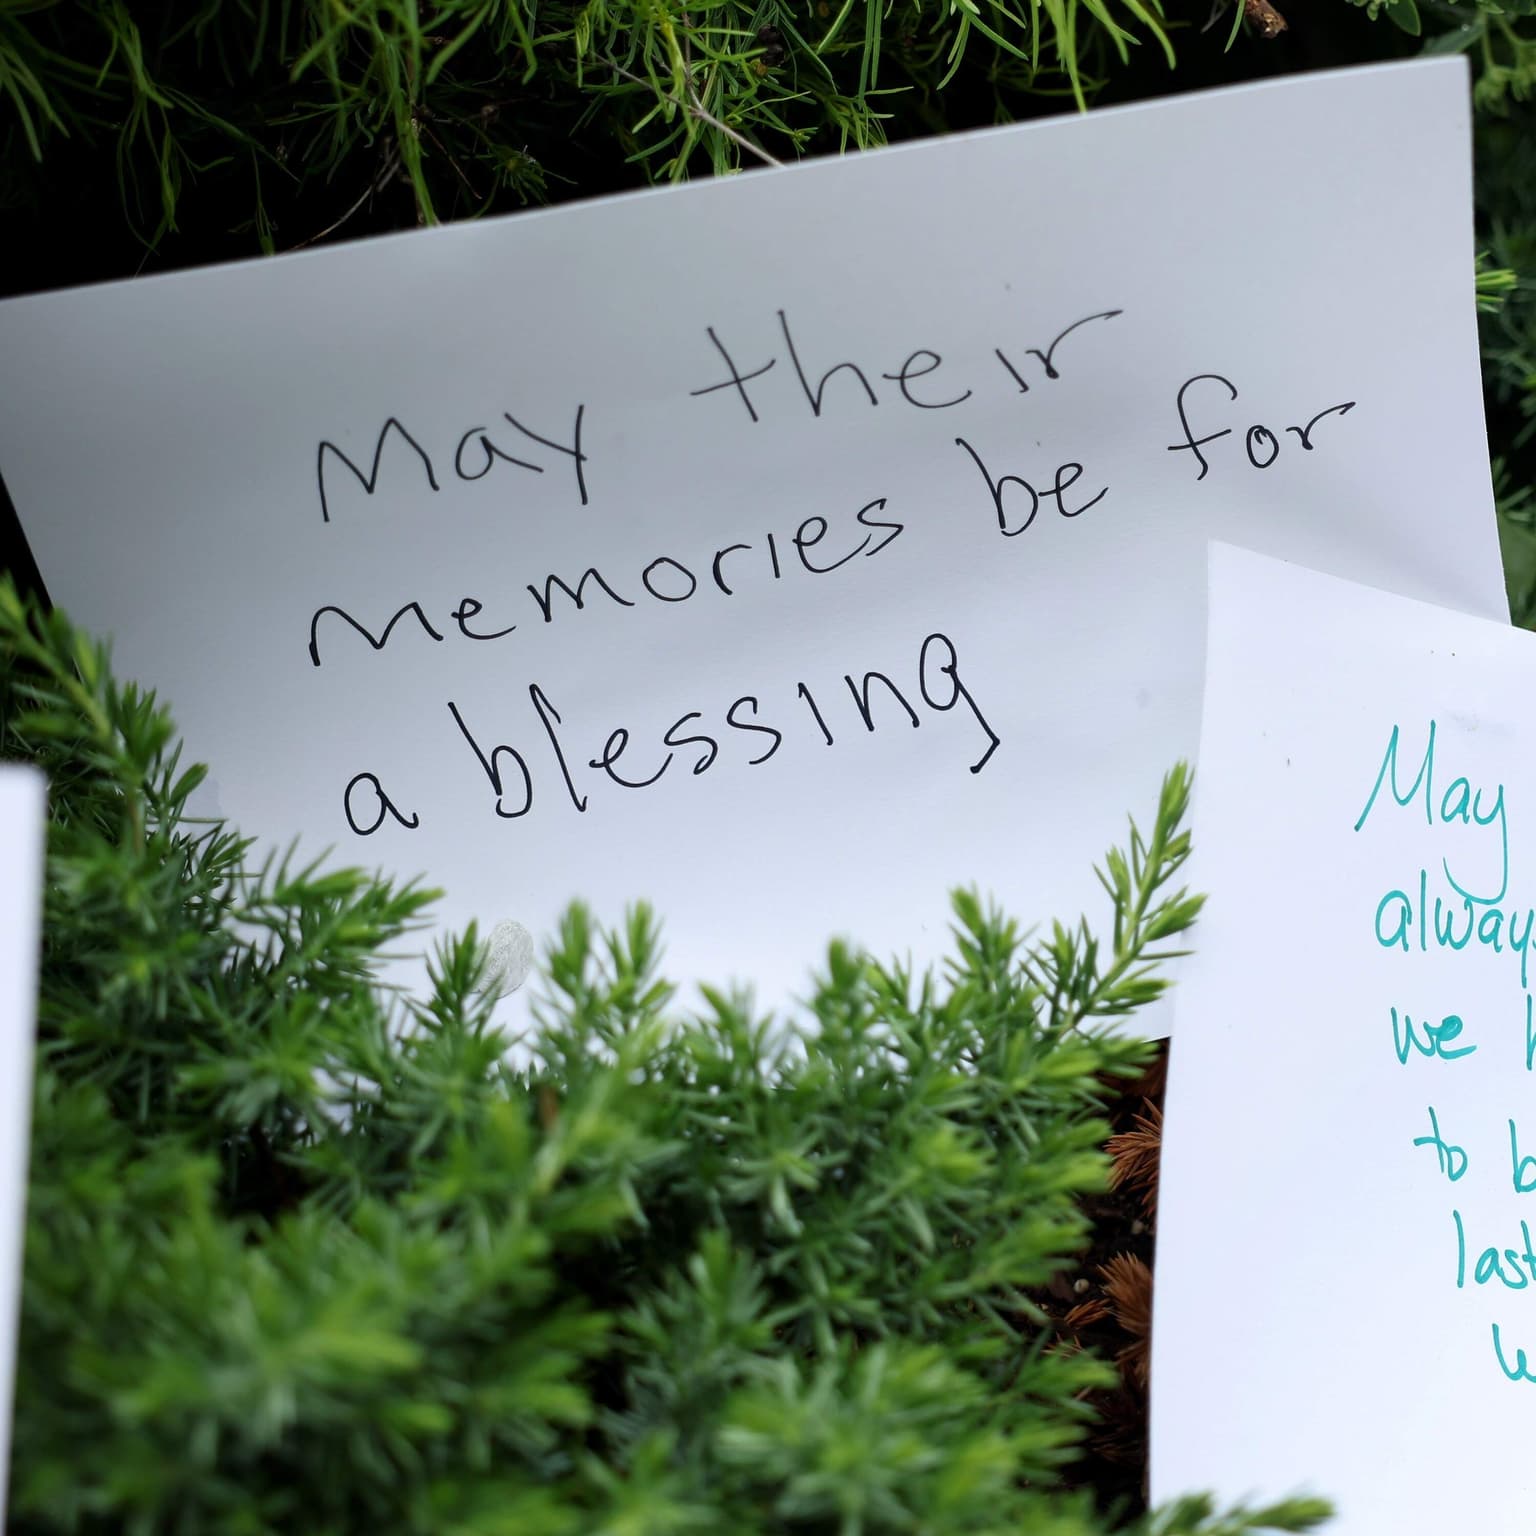 May their
memories be for
a blessing
May
always
we
to
last